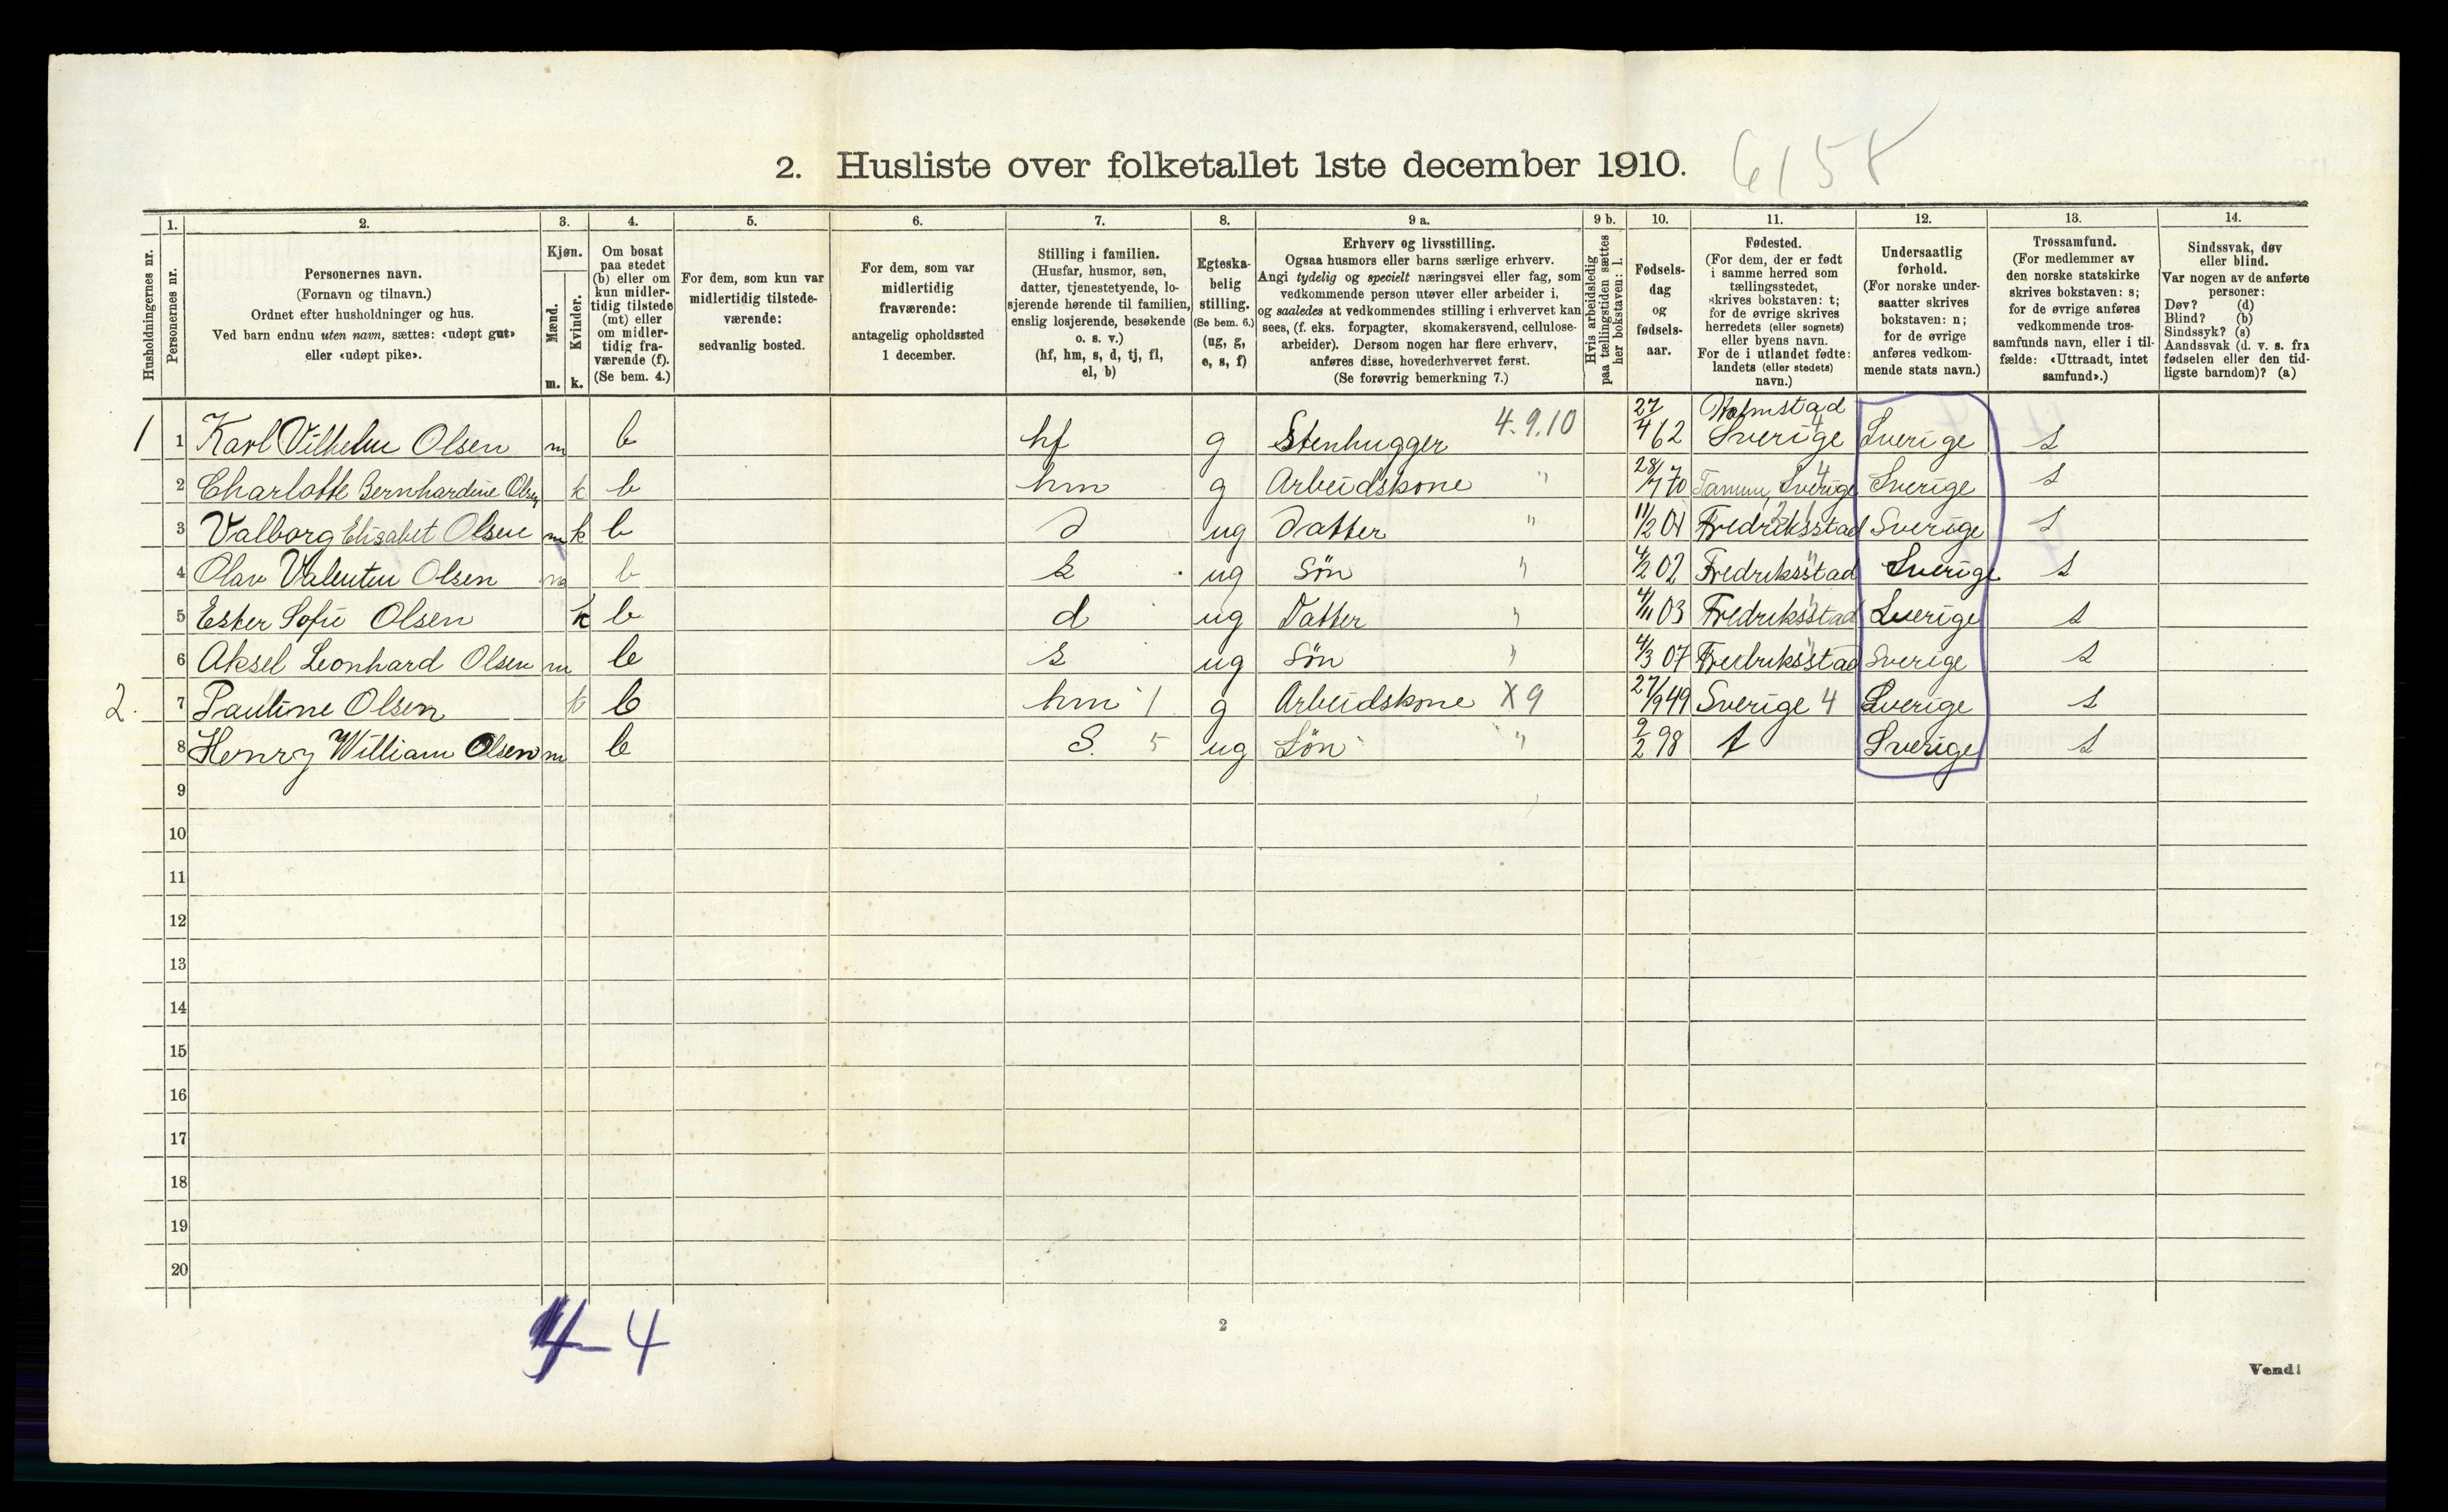 2. Husliste over folketallet 1ste december 1910.
6158
Husholdningernes nr.
1.
Personernes nr.
2.
Personernes navn.
(Fornavn og tilnavn.)
Ordnet efter husholdninger og hus.
Ved barn endnu uten navn, sættes: «udøpt gut»
eller «udøpt pike».
3.
Kjøn.
Mænd.
Kvinder.
m. k.
4.
Om bosat
paa stedet
(b) eller om
kun midler-
tidig tilstede
(mt) eller
om midler-
tidig fra-
værende (f).
(Se bem. 4.)
5.
For dem, som kun var
midlertidig tilstede-
værende:
sedvanlig bosted.
6.
For dem, som var
midlertidig
fraværende:
antagelig opholdssted
1 december.
7.
Stilling i familien.
(Husfar, husmor, søn,
datter, tjenestetyende, lo-
sjerende hørende til familien,
enslig losjerende, besøkende
o. s. v.)
(hf, hm, s, d, tj, fl,
el, b)
8.
Egteska-
belig
stilling.
(Se bem. 6.)
(ug, g,
e, s, f)
9 a.
Erhverv og livsstilling.
Ogsaa husmors eller barns særlige erhverv.
Angi tydelig og specielt næringsvei eller fag, som
vedkommende person utøver eller arbeider i,
og saaledes at vedkommendes stilling i erhvervet kan
sees, (f. eks. forpagter, skomakersvend, cellulose-
arbeider). Dersom nogen har flere erhverv,
anføres disse, hovederhvervet først.
(Se forøvrig bemerkning 7.)
9 b.
Hvis arbeidsledig
paa tællingstiden sættes
her bokstaven: l.
10.
Fødsels-
dag
og
fødsels-
aar.
11.
Fødested.
(For dem, der er født
i samme herred som
tællingsstedet,
skrives bokstaven: t;
for de øvrige skrives
herredets (eller sognets)
eller byens navn.
For de i utlandet fødte:
landets (eller stedets)
navn.)
12.
Undersaatlig
forhold.
(For norske under-
saatter skrives
bokstaven: n;
for de øvrige
anføres vedkom-
mende stats navn.)
13.
Trossamfund.
(For medlemmer av
den norske statskirke
skrives bokstaven: s;
for de øvrige anføres
vedkommende tros-
samfunds navn, eller i til-
fælde: «Uttraadt, intet
samfund».)
14.
Sindssvak, døv
eller blind.
Var nogen av de anførte
personer:
Døv? (d)
Blind? (b)
Sindssyk? (s)
Aandssvak (d. v. s. fra
fødselen eller den tid-
ligste barndom)? (a)
1 1 Karl Vilhelm Olsen m b hf g Stenhugger 4.9.10 27/4 62 Halmstad Sverige 4 Sverige s
2 Charlotte Bernhardine Olsen k b hm g Arbeidskone " 28/7 70 Tanum, Sverige 4 Sverige s
3 Valborg Elisabet Olsen m k b d ug Datter " 11/2 01 Fredriksstad Sverige s
4 Olav Valentin Olsen m b s ug Søn " 4/2 02 Fredriksstad " Sverige s
5 Ester Sofie Olsen k b d ug Datter " 4/11 03 Fredriksstad " Sverige s
6 Aksel Leonhard Olsen m b s ug Søn " 4/3 07 Fredriksstad " Sverige s
2. 7 Pauline Olsen k b hm 1 g Arbeidskone X9 27/9 49 Sverige 4 Sverige s
8 Henry William Olsen m b S. 5 ug Søn " 9/2 98 t Sverige s
9
10
11
12
13
14
15
16
17
18
19
20
4-4
2
Vend!